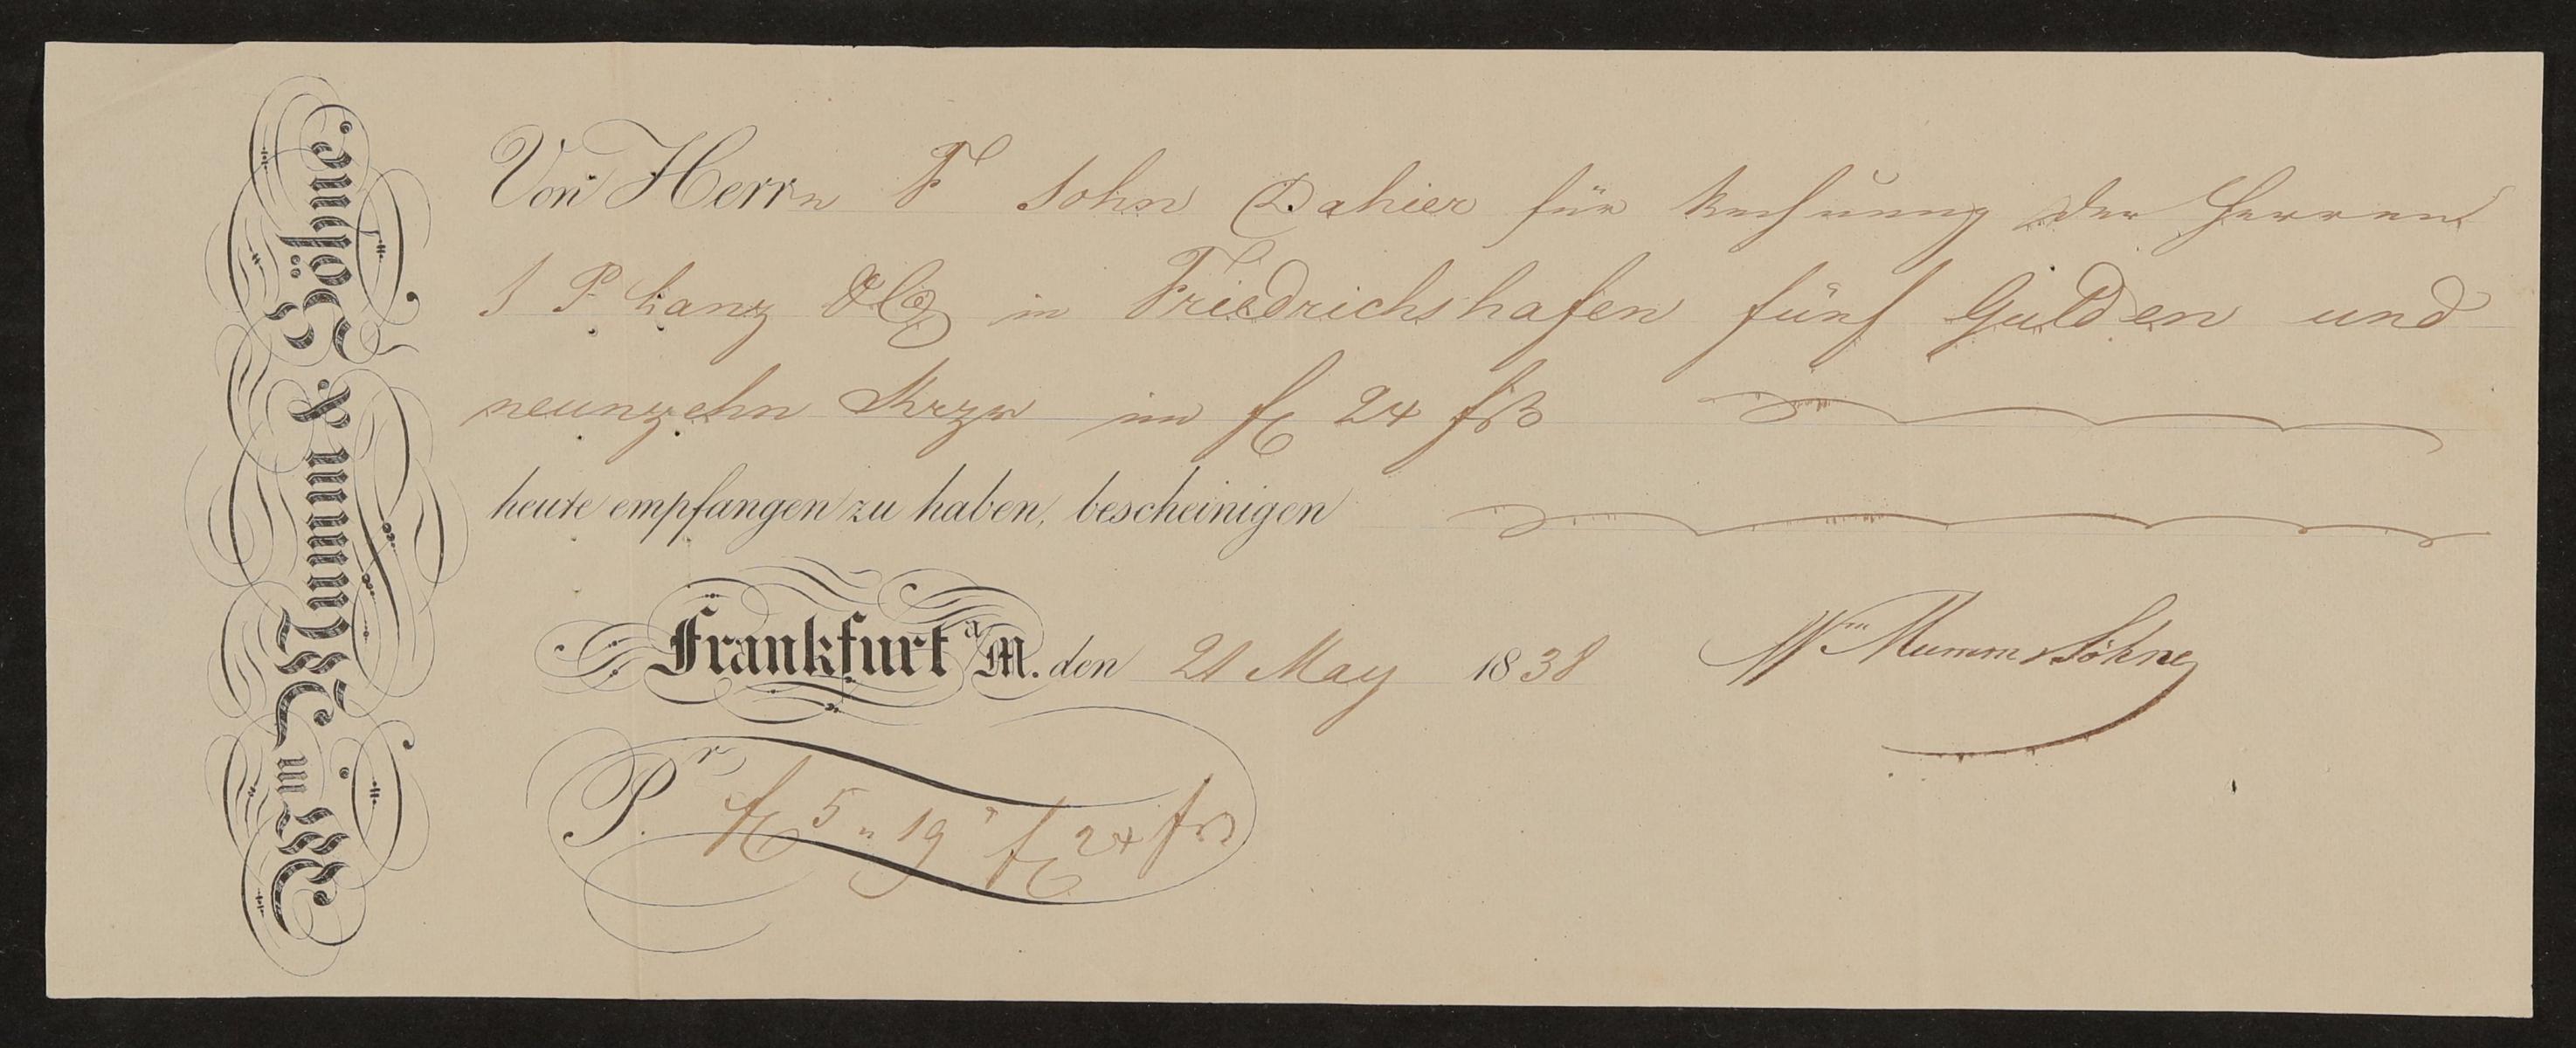 Wm Mumm & Söhne.
Von Herrn F John Dahier für Rechnung der Herren
J P Lanz & Co in Friedrichshafen fünf Gulden und
neunzehn Krzr im fl 24 fß
heute empfangen zu haben, bescheinigen
Frankfurt a/M. den 21 May 1838 Wm Mumm & Söhne
Pr. fl 5 „ 19 " fl 24 fß